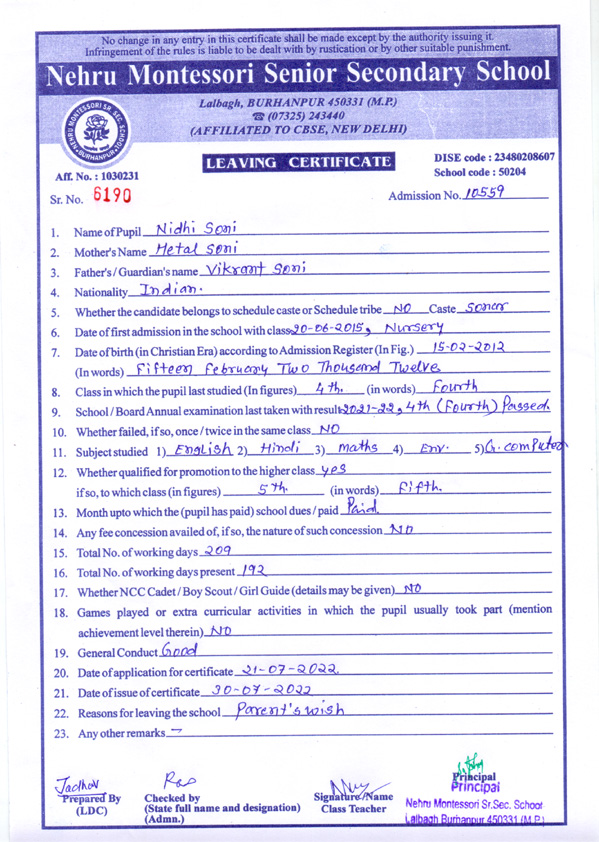 No change in any entry in this certificate shall be made except by the authority issuing it.
Infringement of the rules is liable to be dealt with by rustication or by other suitable punishment.
Nehru Montessori Senior Secondary School
Lalbagh, BURHANPUR 450331 (M.P.)
☎ (07325) 243440
(AFFILIATED TO CBSE, NEW DELHI)
NEHRU MONTESSORI SR. SEC. SCHOOL
BURHANPUR
LEAVING CERTIFICATE
DISE code : 23480208607
School code : 50204
Aff. No. : 1030231
Sr. No. 6190
Admission No. 10559
1. Name of Pupil Nidhi Soni
2. Mother's Name Hetal Soni
3. Father's / Guardian's name Vikrant Soni
4. Nationality Indian.
5. Whether the candidate belongs to schedule caste or Schedule tribe NO Caste Soner
6. Date of first admission in the school with class 20-06-2015, Nursery
7. Date of birth (in Christian Era) according to Admission Register (In Fig.) 15-02-2012
(In words) Fifteen February Two Thousand Twelve
8. Class in which the pupil last studied (In figures) 4th. (in words) Fourth
9. School / Board Annual examination last taken with result 2021-22, 4th (Fourth) Passed.
10. Whether failed, if so, once / twice in the same class NO
11. Subject studied 1) English 2) Hindi 3) maths 4) Env. 5) G. computer
12. Whether qualified for promotion to the higher class yes
if so, to which class (in figures) 5th. (in words) Fifth.
13. Month upto which the (pupil has paid) school dues / paid Paid
14. Any fee concession availed of, if so, the nature of such concession NO
15. Total No. of working days 209
16. Total No. of working days present 192
17. Whether NCC Cadet / Boy Scout / Girl Guide (details may be given) NO
18. Games played or extra curricular activities in which the pupil usually took part (mention
achievement level therein) NO
19. General Conduct Good
20. Date of application for certificate 21-07-2022
21. Date of issue of certificate 30-07-2022
22. Reasons for leaving the school Parent's wish
23. Any other remarks —
Jadhav
Prepared By
(LDC)
Rao
Checked by
(State full name and designation)
(Admn.)
Signature/Name
Class Teacher
Principal
Principal
Nehru Montessori Sr.Sec. School
Lalbagh Burhanpur 450331 (M.P.)